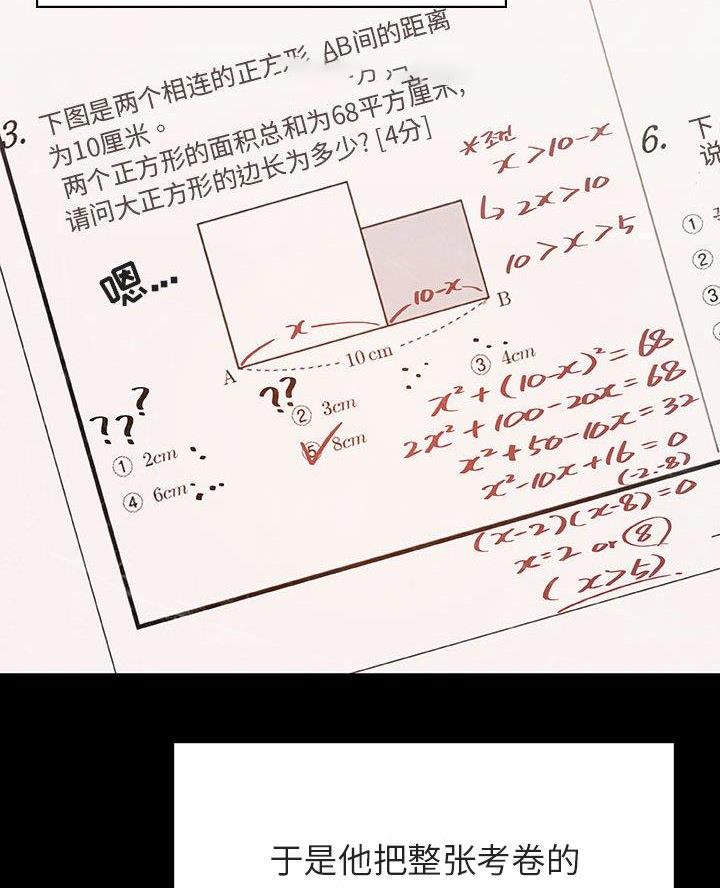 3. 下图是两个相连的正方形, AB间的距离
为10厘米。
两个正方形的面积总和为68平方厘米,
请问大正方形的边长为多少? [4分]
嗯...
x
10-x
A
B
10 cm
??
??
?
① 2cm
② 3cm
③ 4cm
④ 6cm
⑤ 8cm
*조건
x > 10-x
↳ 2x > 10
10 > x > 5
x² + (10-x)² = 68
2x² + 100 - 20x = 68
x² + 50 - 10x = 32
x² - 10x + 16 = 0
(-2 -8)
(x-2)(x-8) = 0
x = 2 or 8
( x < 5 )
6. 下
说
①
②
③
于是他把整张考卷的